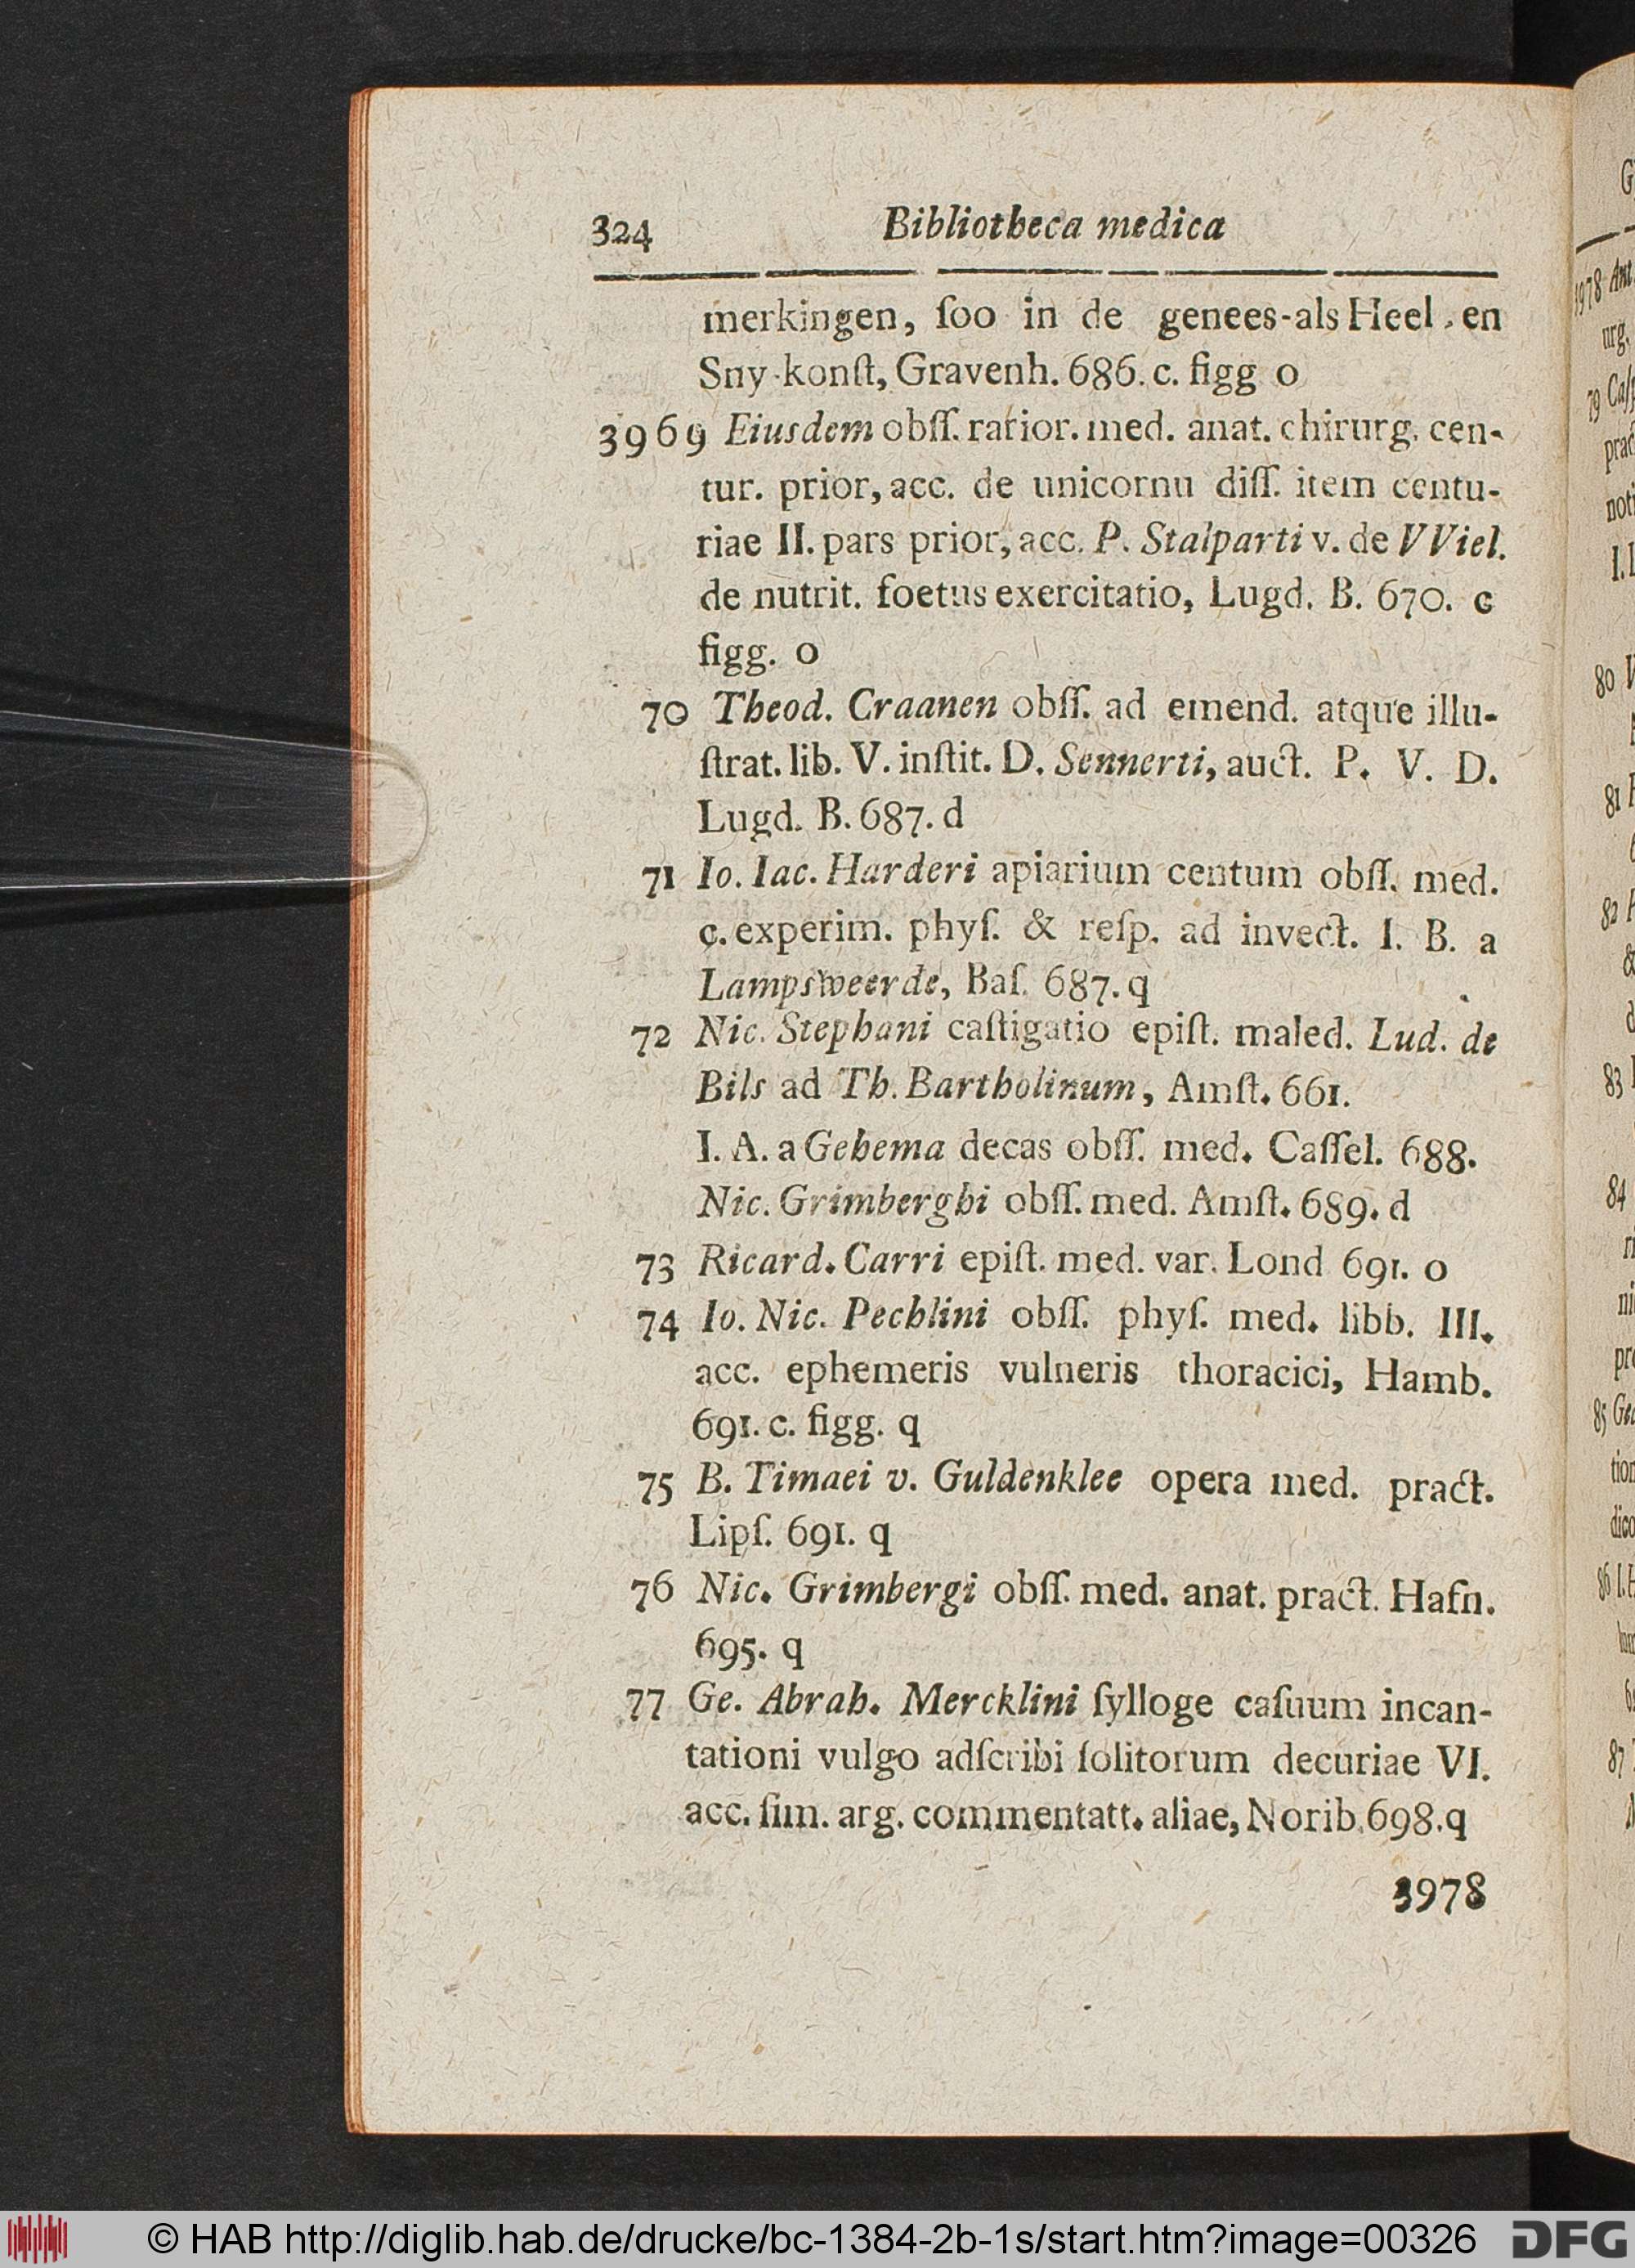 324 Bibliotheca medica
merkingen, ſoo in de genees-als Heel-en
Sny-konſt, Gravenh. 686. c. figg o
3969 Eiusdem obſſ. rarior. med. anat. chirurg. cen-
tur. prior, acc. de unicornu diſſ. item centu-
riae II. pars prior, acc. P. Stalparti v. de VViel.
de nutrit. foetus exercitatio, Lugd. B. 670. c
figg. o
70 Theod. Craanen obſſ. ad emend. atque illu-
ſtrat. lib. V. inſtit. D. Sennerti, auct. P. V. D.
Lugd. B. 687. d
71 Io. Iac. Harderi apiarium centum obſſ. med.
c. experim. phyſ. & reſp. ad invect. I. B. a
Lampsweerde, Baſ. 687. q
72 Nic. Stephani caſtigatio epiſt. maled. Lud. de
Bils ad Th. Bartholinum, Amſt. 661.
I. A. a Gehema decas obſſ. med. Caſſel. 688.
Nic. Grimberghi obſſ. med. Amſt. 689. d
73 Ricard. Carri epiſt. med. var. Lond 691. o
74 Io. Nic. Pechlini obſſ. phyſ. med. libb. III.
acc. ephemeris vulneris thoracici, Hamb.
691. c. figg. q
75 B. Timaei v. Guldenklee opera med. pract.
Lipſ. 691. q
76 Nic. Grimbergi obſſ. med. anat. pract. Hafn.
695. q
77 Ge. Abrah. Mercklini ſylloge caſuum incan-
tationi vulgo adſcribi ſolitorum decuriae VI.
acc. ſim. arg. commentatt. aliae, Norib. 698. q
3978
© HAB http://diglib.hab.de/drucke/bc-1384-2b-1s/start.htm?image=00326
DFG